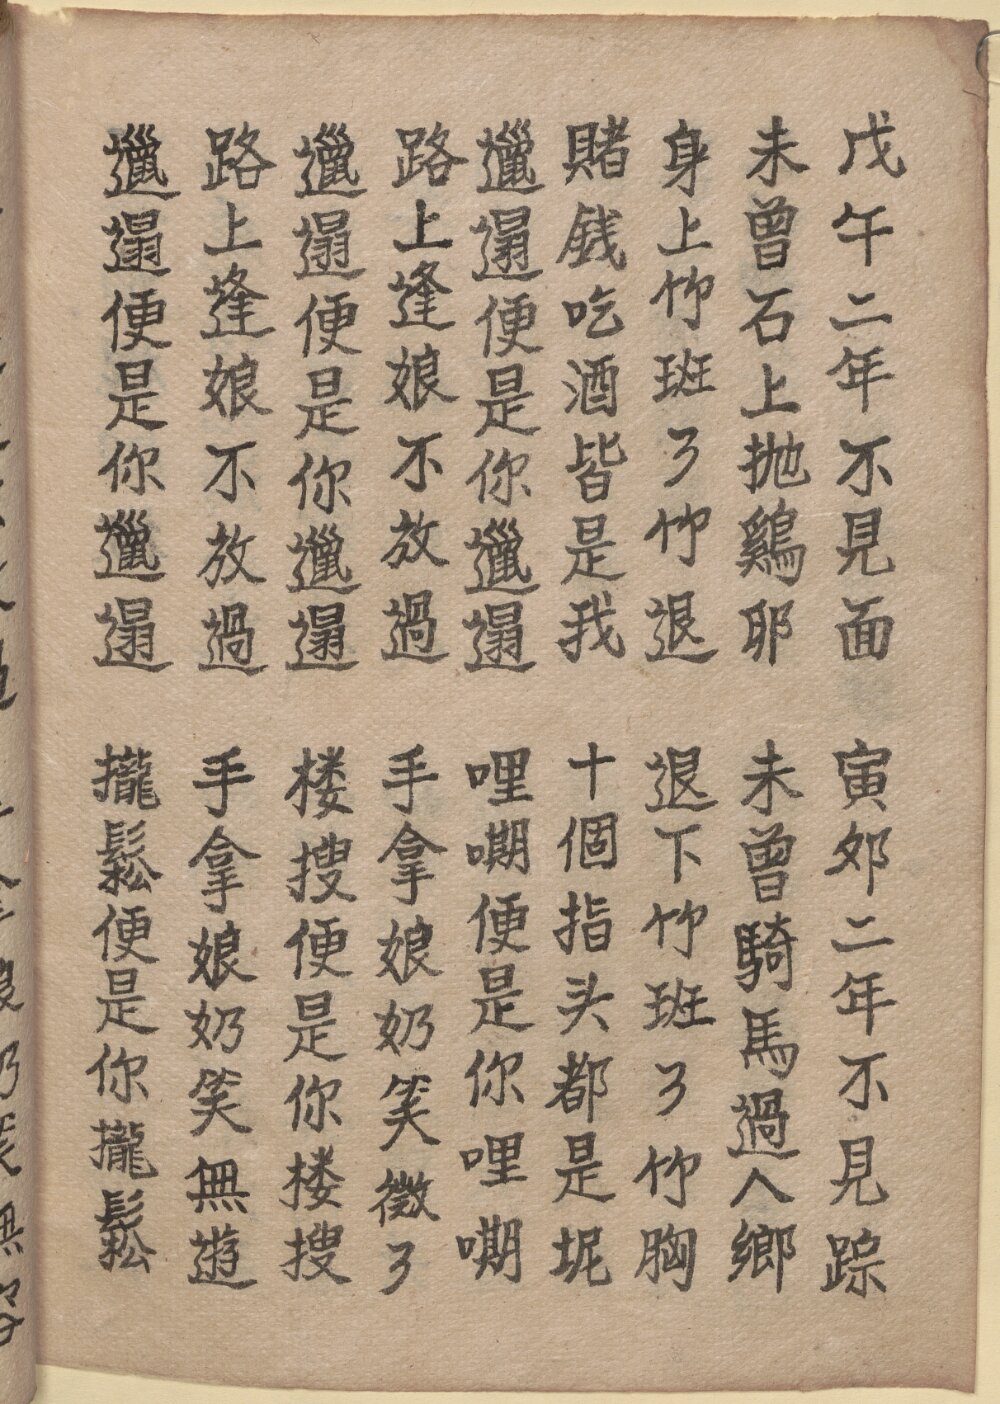 戊午二年不見面　寅卯二年不見踪
未曾石上抛鷄耶　未曾騎馬過人鄉
身上竹班了竹退　退下竹班了竹胸
賭銭吃酒皆是我　十個指头都是坭
邋遢便是你邋遢　哩嘲便是你哩嘲
路上逢娘不放過　手拿娘奶笑微了
邋遢便是你邋遢　楼搜便是你楼搜
路上逢娘不放過　手拿娘奶笑無遊
邋遢便是你邋遢　攏鬆便是你攏鬆